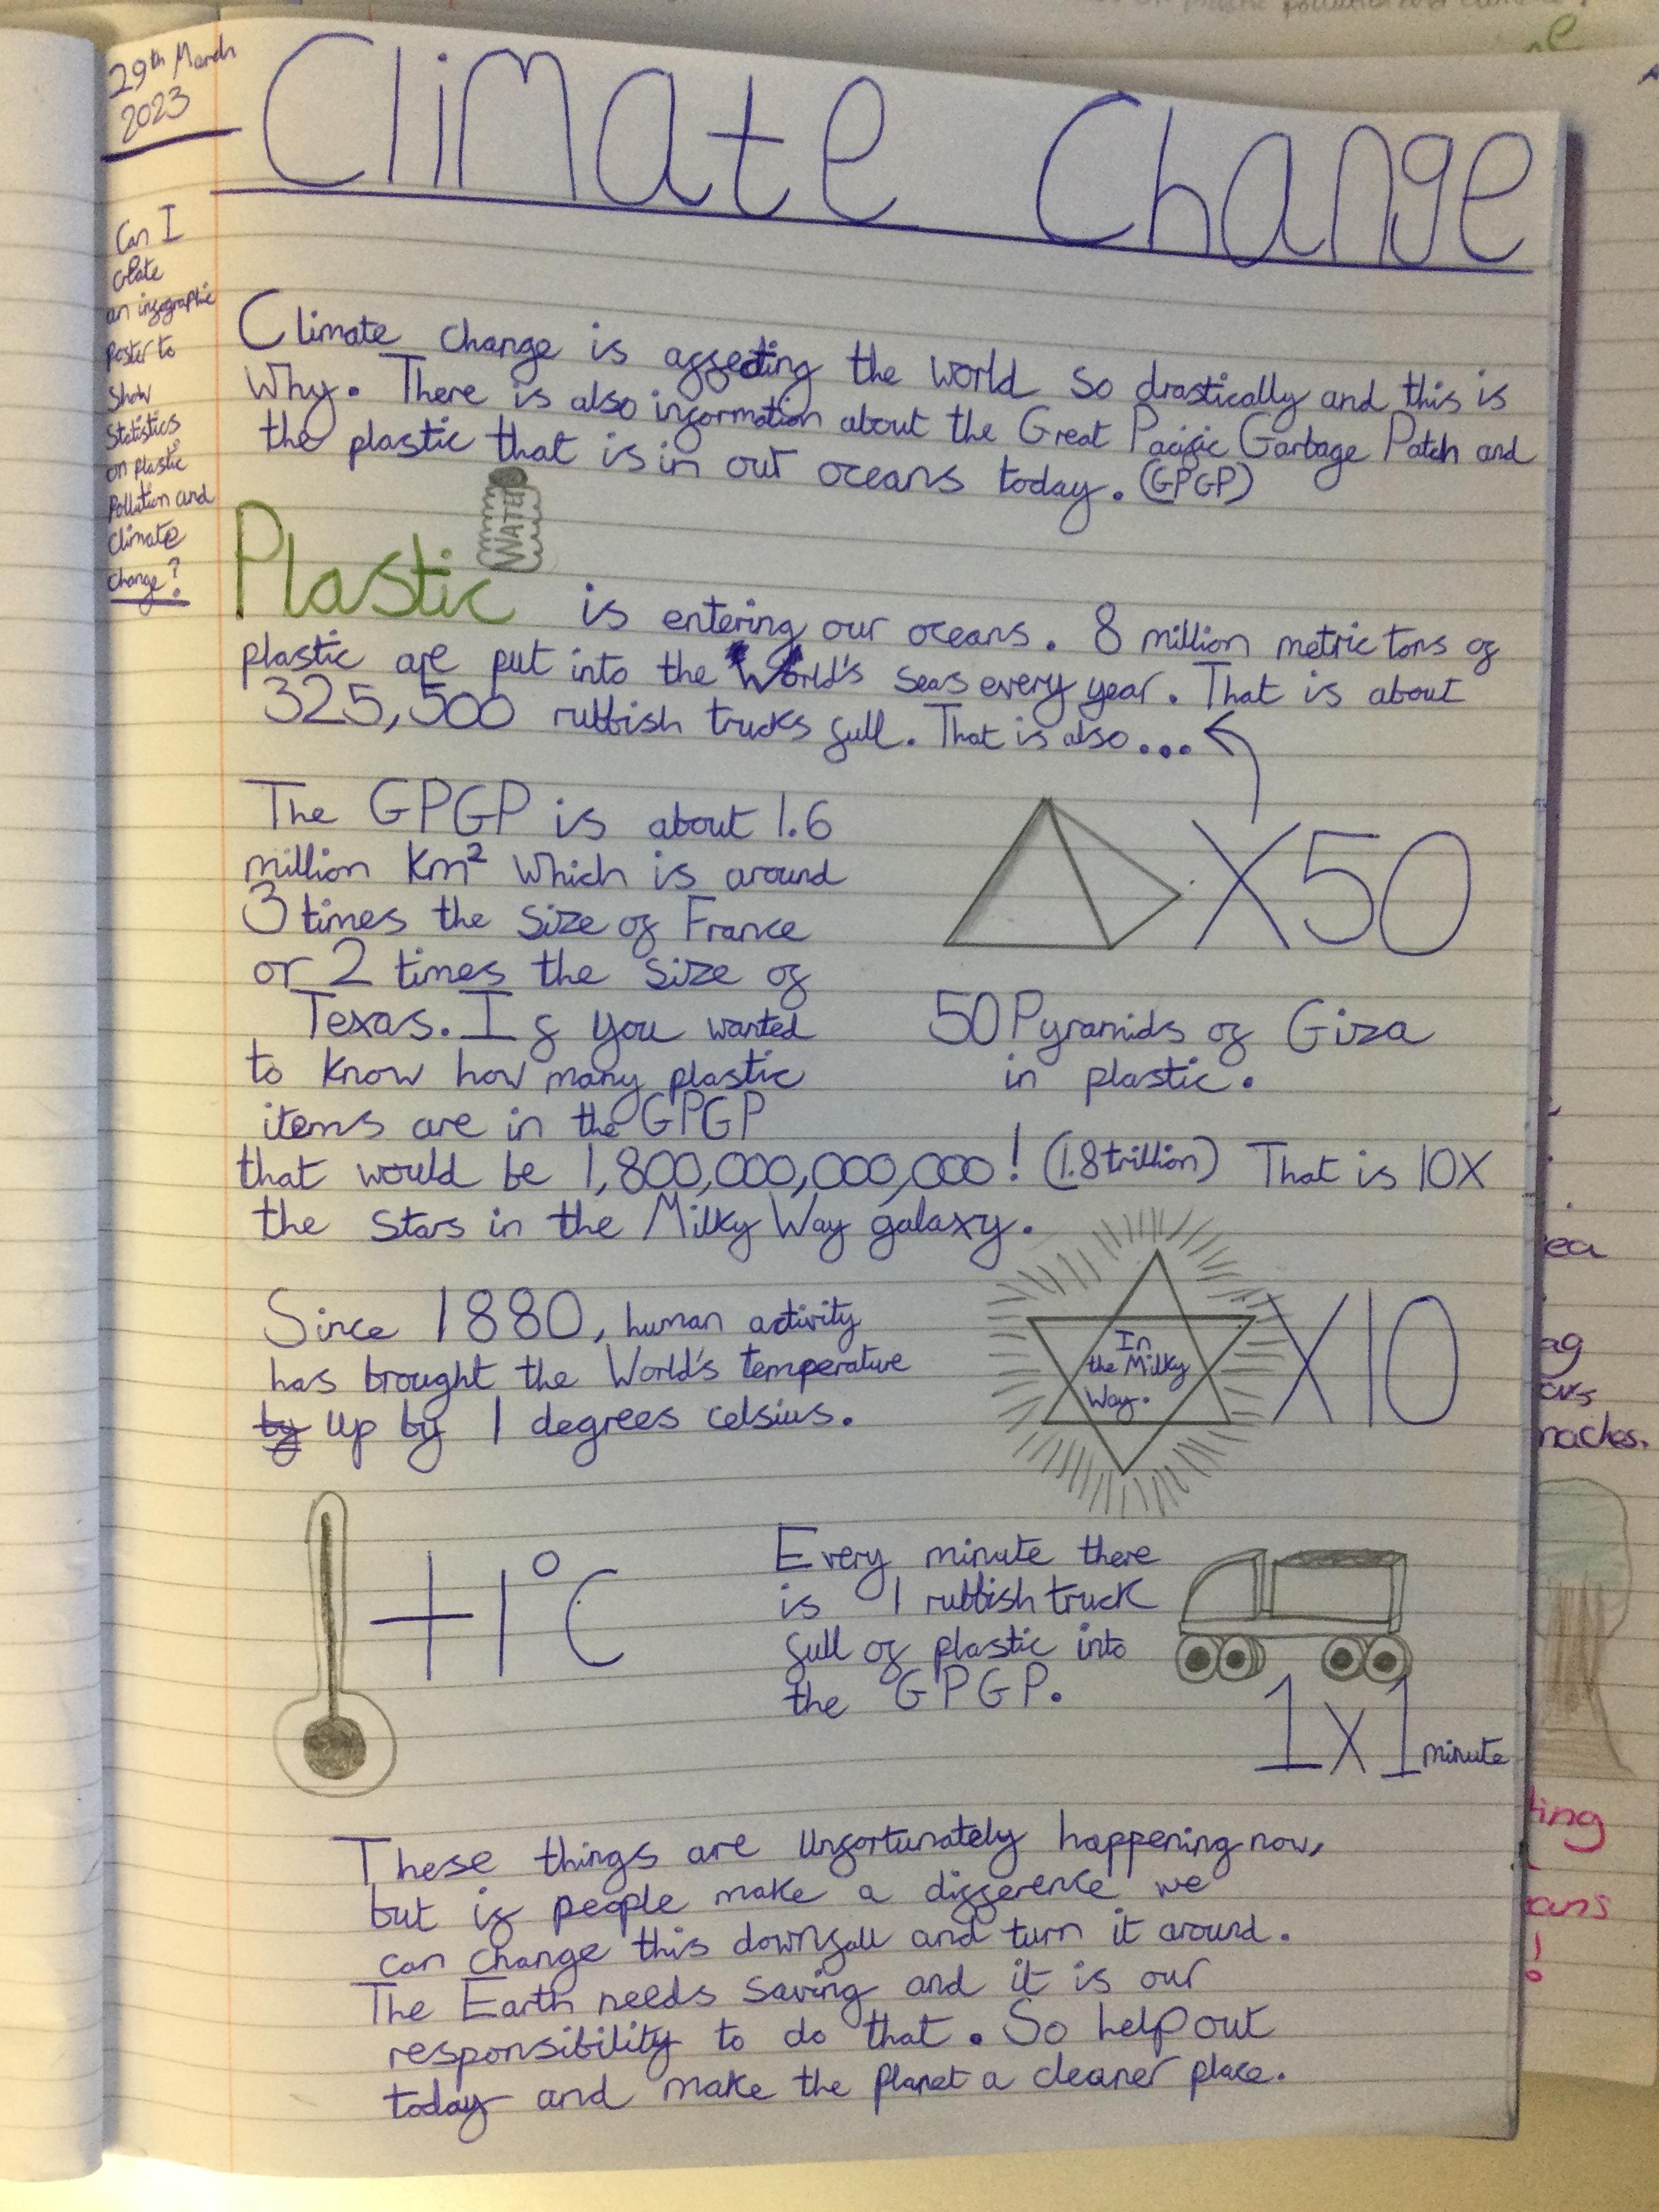 29th March
2023
Climate Change
Can I
create
an infographic
poster to
show
statistics
on plastic
pollution and
climate
change?
Climate change is affecting the world so drastically and this is
why. There is also information about the Great Pacific Garbage Patch and
the plastic that is in our oceans today. (GPGP)
WATER
Plastic is entering our oceans. 8 million metric tons of
plastic are put into the World's seas every year. That is about
325,500 rubbish trucks full. That is also...
The GPGP is about 1.6
million km² which is around
3 times the size of France
or 2 times the size of
Texas. If you wanted
to know how many plastic
items are in the GPGP
X50
50 Pyramids of Giza
in plastic.
that would be 1,800,000,000,000! (1.8 trillion) That is 10X
the stars in the Milky Way galaxy.
Since 1880, human activity
has brought the World's temperature
by up by 1 degrees celsius.
In
the Milky
Way.
X10
+1°C
Every minute there
is 1 rubbish truck
full of plastic into
the GPGP.
1 X 1 minute
These things are unfortunately happening now,
but if people make a difference we
can change this downfall and turn it around.
The Earth needs saving and it is our
responsibility to do that. So help out
today and make the planet a cleaner place.
ting